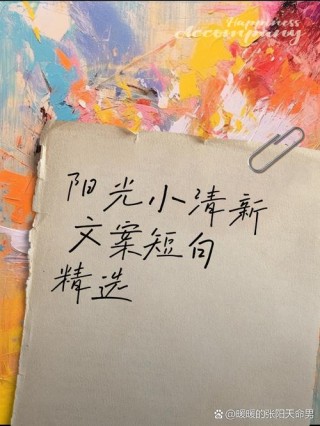 Happiness
accompany
阳光小清新
文案短句
精选
@暖暖的张阳天命男